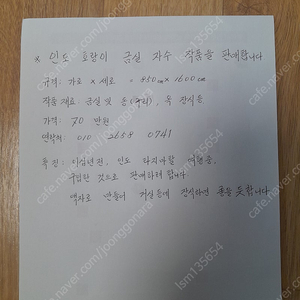 ※ 인도 호랑이 금실 자수 작품을 판매합니다
규격: 가로 × 세로 = 850cm × 1600cm
작품재료: 금실 및 은(구리), 옥 장식등
가격: 70 만원
연락처: 010 2658 0741
특징: 이십년전, 인도 타지마할 여행중,
구입한 것으로 판매하려 합니다.
액자로 만들어 거실등에 장식하면
cafe.naver.com/joonggonara
lsm135654